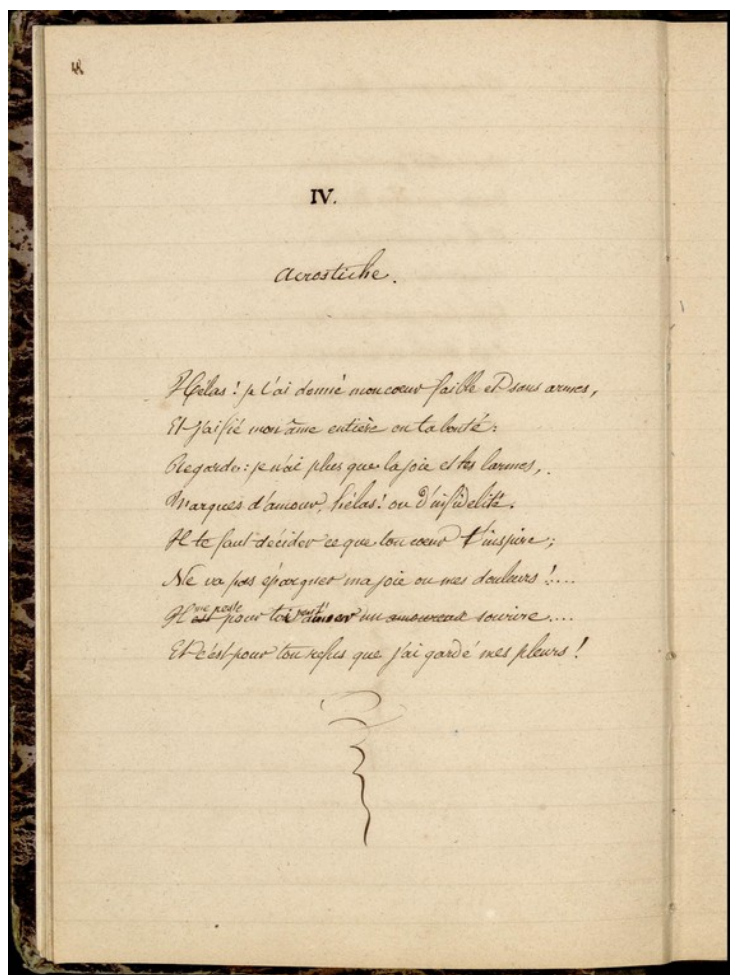 IV.
Acrostiche.
Hélas ! je t'ai donné mon coeur faible et sans armes,
Et j'ai fié mon âme entière en ta bonté :
Regarde : je n'ai plus que la joie et les larmes,
Marques d'amour, hélas ! ou d'infidélité.
Il te faut décider ce que ton coeur t'inspire ;
Ne va pas épargner ma joie ou mes douleurs !....
me reste
Il est pour toi un amoureux sourire....
Et c'est pour ton refus que j'ai gardé mes pleurs !